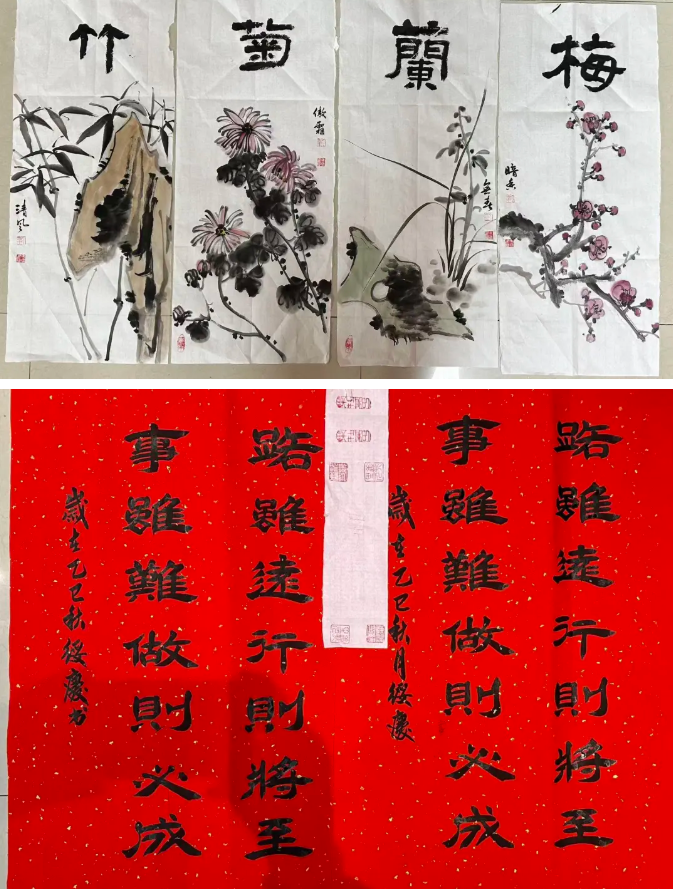 梅
暗香
蘭
菊
傲霜
竹
清风
路雖遠行則將至
事雖難做則必成
歲在乙巳秋月綏慶
路雖遠行則將至
事雖難做則必成
歲在乙巳秋綏慶书